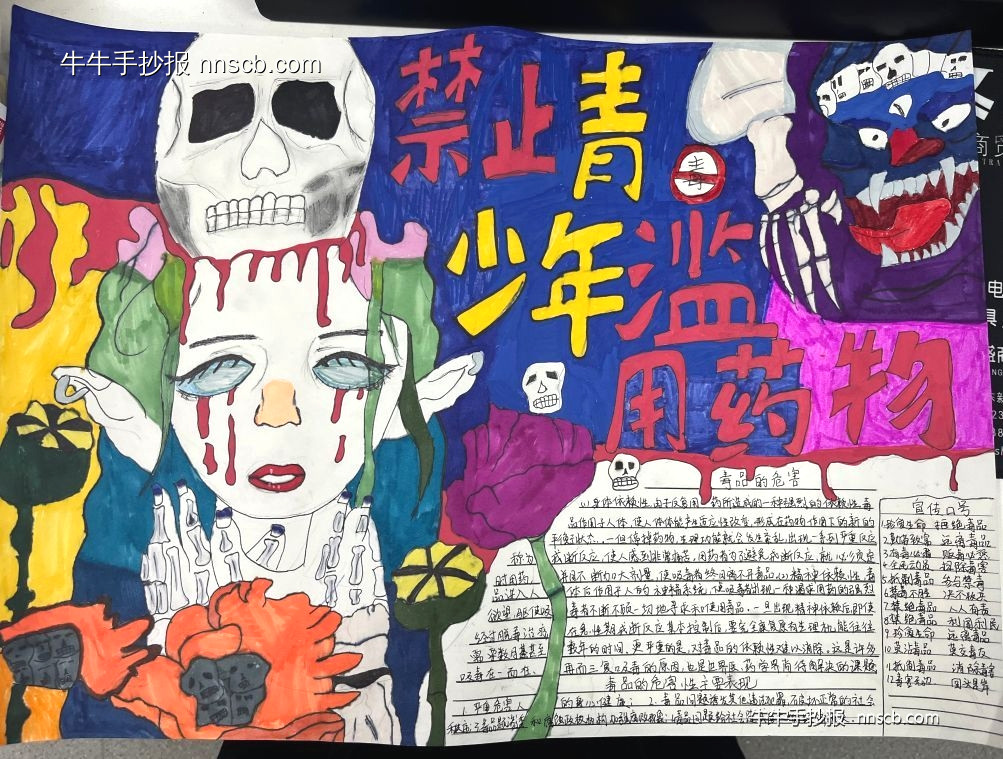 牛牛手抄报 nnscb.com
禁止青
少年滥
用药物
毒
毒品的危害
(1)身体依赖性,由于反复用药所造成的一种强烈的依赖性。毒
品作用于人体,使人体体能产生适应性改变,形成在药物作用下的新的
平衡状态。一但停掉药物,生理功能就会发生紊乱,出现一系列严重反应
称为戒断反应,使人感到非常痛苦。用药者为了避免戒断反应,就必须定
时用药,并且不断加大剂量,使吸毒者终日离不开毒品。(2)精神依赖性,毒
品进入人体后作用于人的神经系统,使吸毒者出现一种渴求用药的强烈
欲望,驱使吸毒者不断不顾一切地寻求和使用毒品。一旦出现精神依赖后,即使
经过脱毒治疗,在急性期戒断反应基本控制后,要完全康复原有生理机能往往
需要数月甚至数年的时间。更严重的是,对毒品的依赖性难以消除。这是许多
吸毒者一而在、再而三复吸毒的原因,也是世界医、药学界尚待解决的课题
毒品的危害性主要表现
1.严重危害人的身心健康;2.毒品问题诱发其他违法犯罪,不良扰正常的社会
宣传口号
1.珍爱生命 拒绝毒品
2.勤劳致富 远离毒品
4.全民动员 扫除毒害
5.抵制毒品 参与禁毒
6.禁毒不胜 决不收兵
7.禁绝毒品 人人有责
8.禁绝毒品 利国利民
9.珍惜生命 远离毒品
10.莫沾毒品 莫交毒友
11.抵制毒品 消除毒害
12.毒害无边 回头是岸
牛牛手抄报 nnscb.com